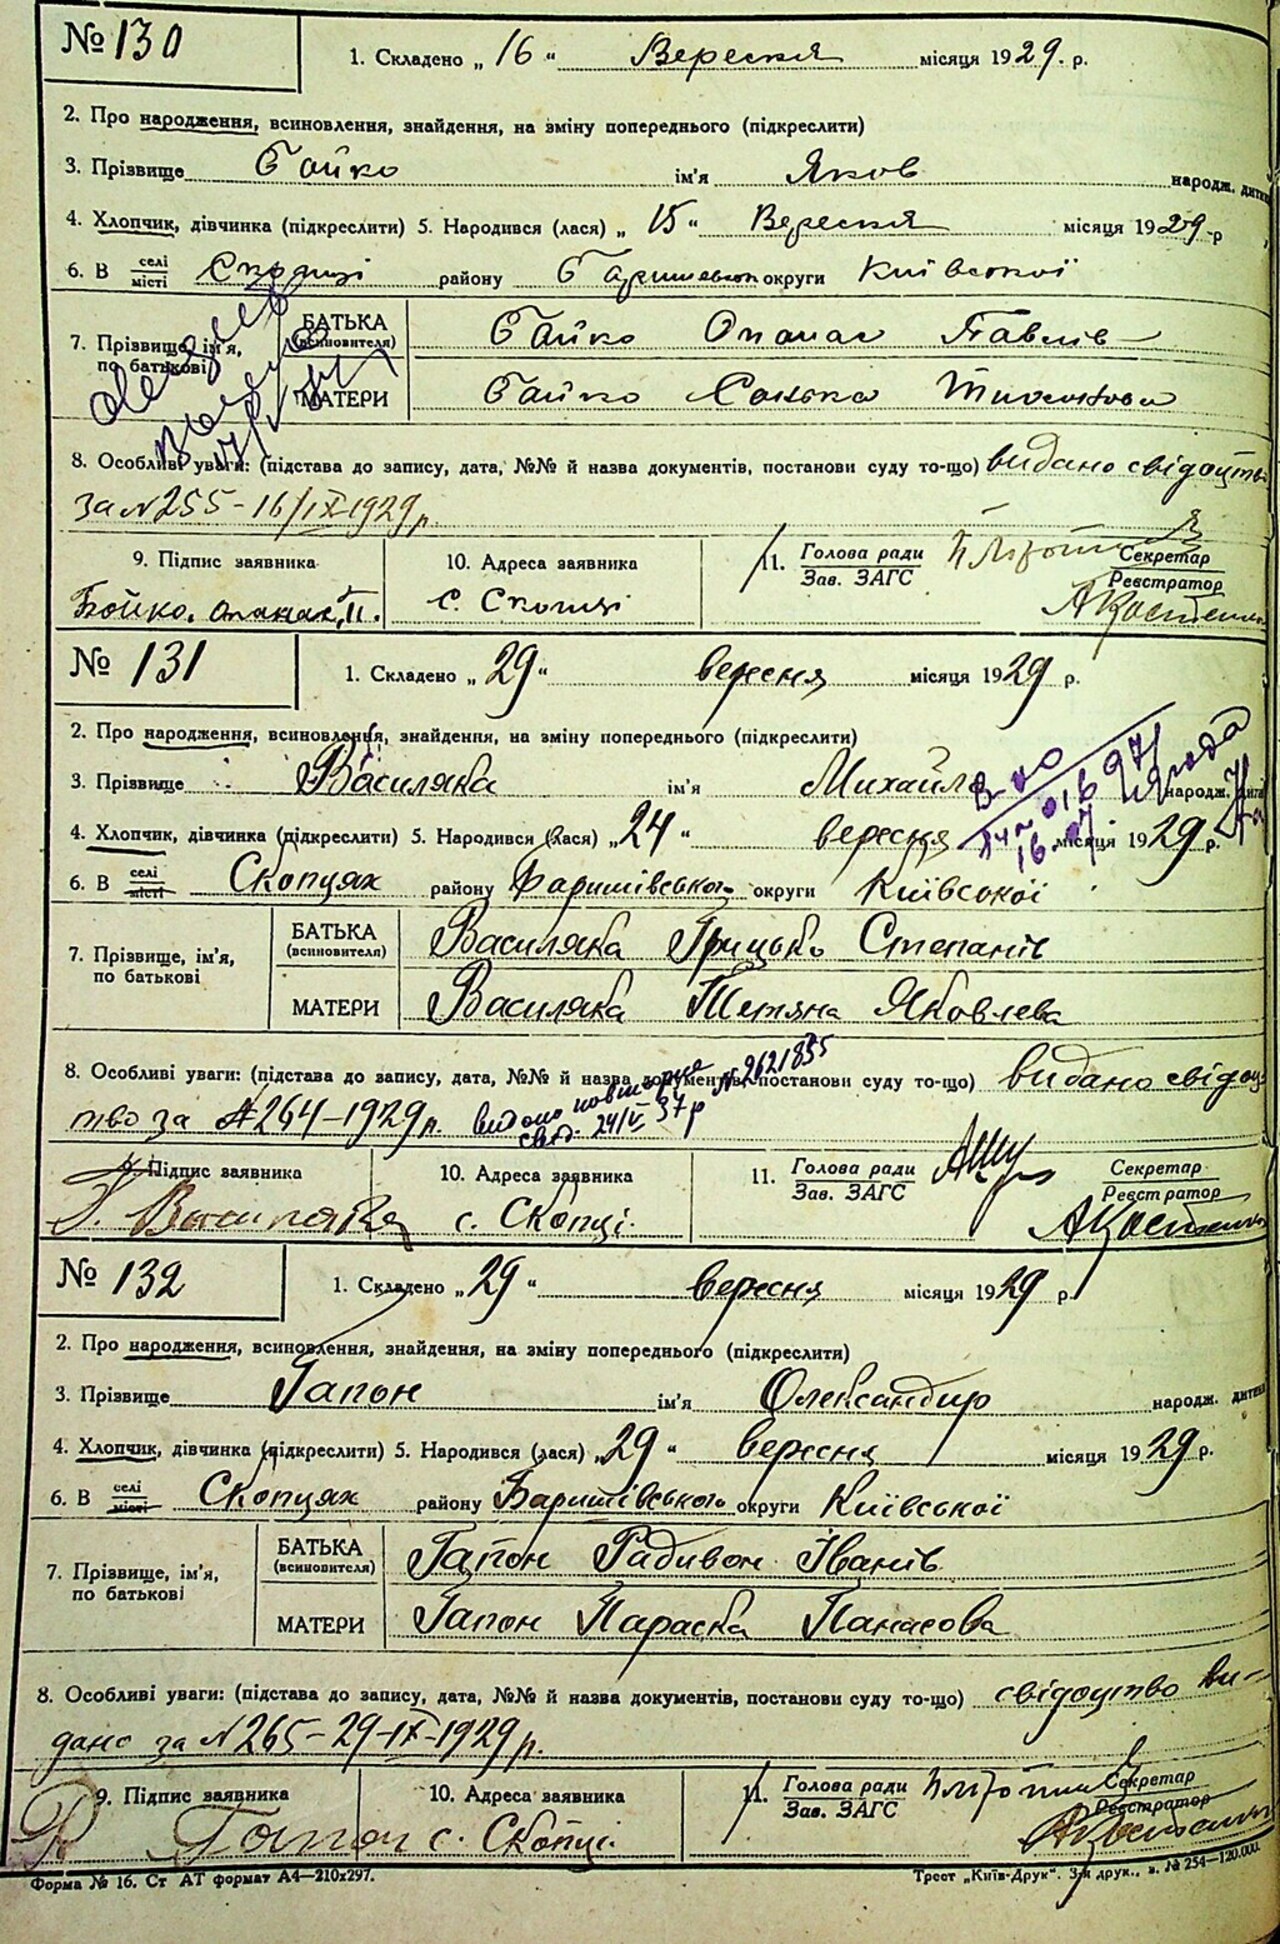 № 130
1. Складено „ 16 “ Вересня місяця 1929. р.
2. Про народження, всиновлення, знайдення, на зміну попереднього (підкреслити)
3. Прізвище Бойко ім'я Яков народж. дитини
4. Хлопчик, дівчинка (підкреслити) 5. Народився (лася) „ 15 “ Вересня місяця 1929 р
6. В селі/місті Скопці району округи Київської
7. Прізвище, ім'я, по батькові
БАТЬКА (всиновителя) Бойко Опанас Павлів
МАТЕРИ Бойко
8. Особливі уваги: (підстава до запису, дата, №№ й назва документів, постанови суду то-що) видано свідоцтво
за № 255 - 16/IX-1929 р.
9. Підпис заявника 10. Адреса заявника 11. Голова ради Секретар
Зав. ЗАГС Реєстратор
Бойко. Опанас, П. с. Скопці
№ 131
1. Складено „ 29 “ вересня місяця 1929 р.
2. Про народження, всиновлення, знайдення, на зміну попереднього (підкреслити)
3. Прізвище Василяка ім'я Михайло народж. дитини
4. Хлопчик, дівчинка (підкреслити) 5. Народився (лася) „ 24 “ вересня місяця 1929 р.
6. В селі/місті Скопцях району Баришівського округи Київської
7. Прізвище, ім'я, по батькові
БАТЬКА (всиновителя) Василяка Грицько Степанів
МАТЕРИ Василяка Тетяна Яковлева
8. Особливі уваги: (підстава до запису, дата, №№ й назва документів, постанови суду то-що) видано свідоц-
тво за № 264-1929 р. видано повторне свід. 24/V 37 р № 2621835
9. Підпис заявника 10. Адреса заявника 11. Голова ради Секретар
Зав. ЗАГС Реєстратор
Г. Василяка с. Скопці.
№ 132
1. Складено „ 29 “ вересня місяця 1929 р.
2. Про народження, всиновлення, знайдення, на зміну попереднього (підкреслити)
3. Прізвище Гапон ім'я Олександир народж. дитини
4. Хлопчик, дівчинка (підкреслити) 5. Народився (лася) „ 29 “ вересня місяця 1929 р.
6. В селі/місті Скопцях району Баришівського округи Київської
7. Прізвище, ім'я, по батькові
БАТЬКА (всиновителя) Гапон Радивон Іванів
МАТЕРИ Гапон Параска Панасова
8. Особливі уваги: (підстава до запису, дата, №№ й назва документів, постанови суду то-що) свідоцтво ви-
дано за № 265-29-IX-1929 р.
9. Підпис заявника 10. Адреса заявника 11. Голова ради Секретар
Зав. ЗАГС Реєстратор
Р Гапон с. Скопці.
Форма № 16. Ст АТ формат А4—210х297. Трест „Київ-Друк“. 3-я друк., з. № 254—120.000.